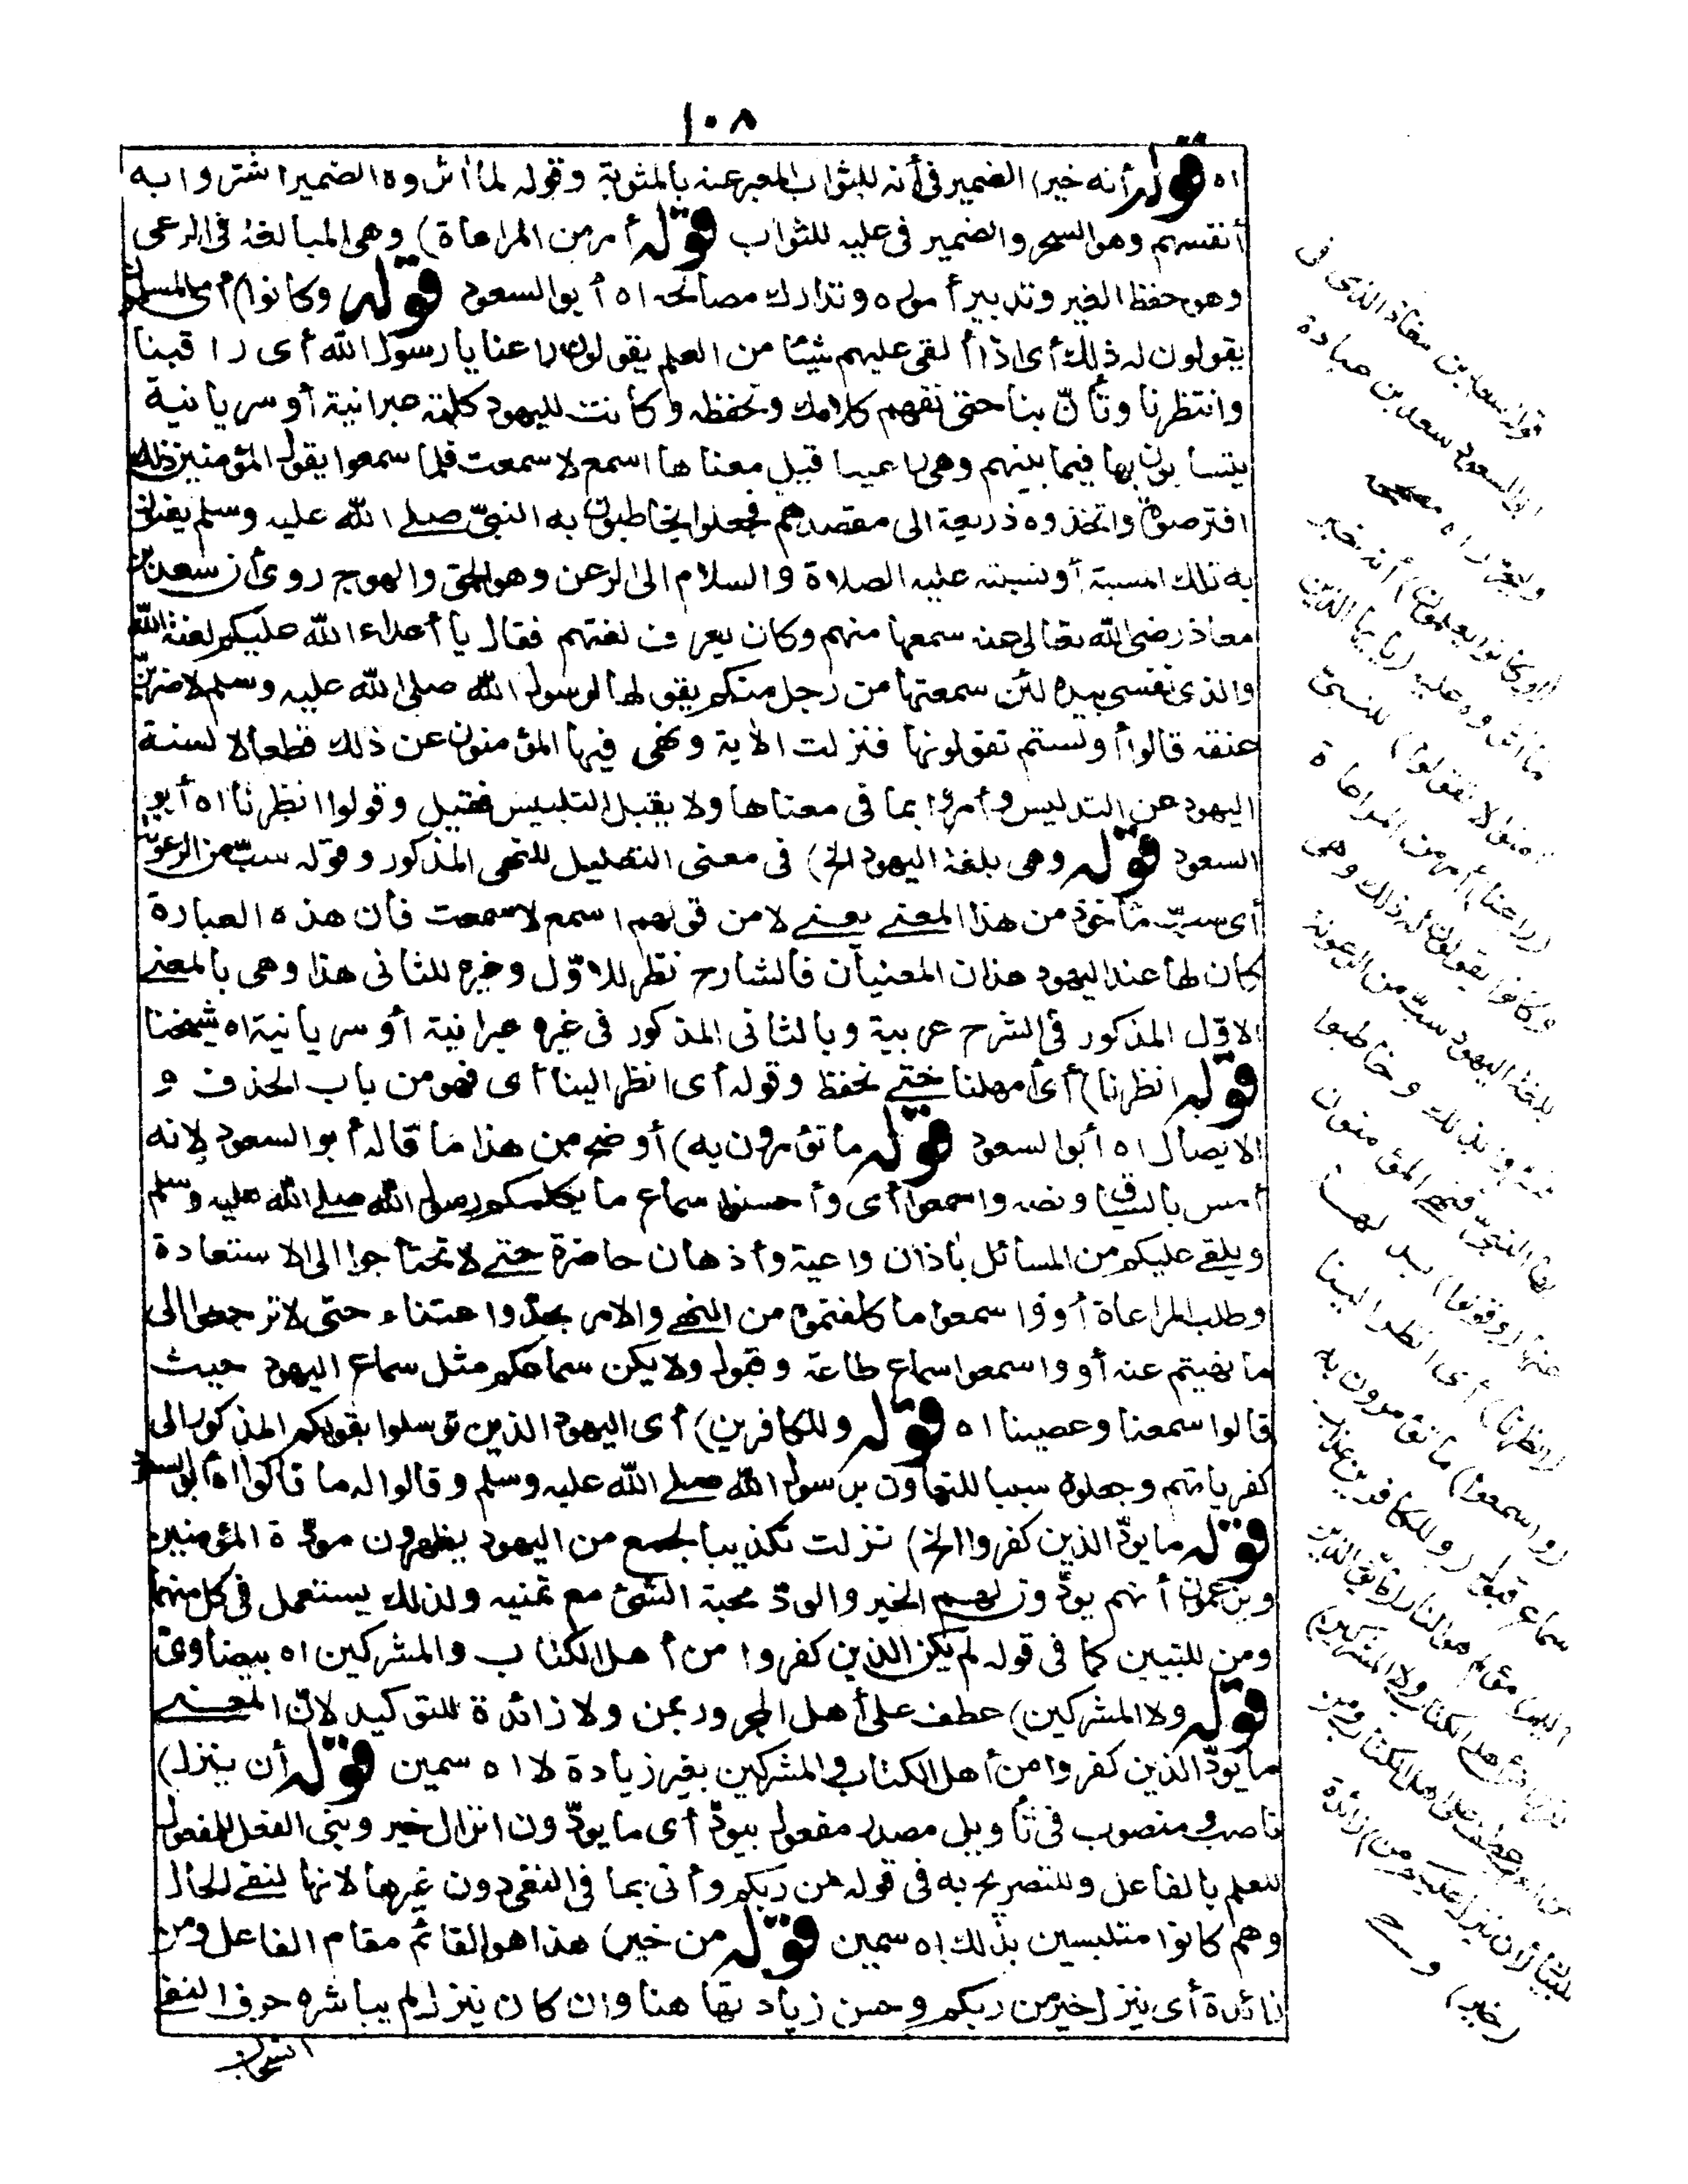 ١٠٨
اه قوله أنه خير) الضمير في أنه للثواب المعبر عنه بالمثوبة وقوله لما اثروه الضمير اشتروا به
أنفسهم وهو السحر والضمير في عليه للثواب قوله أمر من المراعاة) وهي المبالغة في الرعى
وهو حفظ الغير وتدبير أموره وتدارك مصالحه اه أبو السعود قوله وكانوا) أي المسلمين
يقولون له ذلك أي اذا ألقى عليهم شيئا من العلم يقولون راعنا يا رسول الله أى راقبنا
وانتظرنا وتأنّ بنا حتى نفهم كلامك ونحفظه وكانت لليهود كلمة عبرانية أو سريانية
يتسابون بها فيما بينهم وهي راعينا قيل معناها اسمع لا سمعت فلما سمعوا يقول المؤمنين ذلك
افترصوه واتخذوه ذريعة الى مقصدهم فجعلوا يخاطبون به النبيّ صلى الله عليه وسلم يعنون
به تلك المسبة أو نسبته عليه الصلاة والسلام الى الرعن وهو الحمق والهوج روى أن سعد بن
معاذ رضى الله تعالى عنه سمعها منهم وكان يعرف لغتهم فقال يا أعداء الله عليكم لعنة الله
والذى نفسى بيده لئن سمعتها من رجل منكم يقولها لرسول الله صلى الله عليه وسلم لاضربنّ
عنقه قالوا أولستم تقولونها فنزلت الاية ونهى فيها المؤمنون عن ذلك قطعا لالسنة
اليهود عن التدليس وأمروا بما في معناها ولا يقبل التلبيس فقيل وقولوا انظرنا اه أبو
السعود قوله وهى بلغة اليهود الخ) في معنى التعليل للنهى المذكور وقوله سبّ من الرعونة
أى سبّ مأخوذ من هذا المعنى يعنى لا من قولهم اسمع لا سمعت فان هذه العبارة
كان لها عند اليهود هذان المعنيان فالشارح نظر للاوّل وغيره للثانى هذا وهى بالمعنى
الاوّل المذكور في الشرح عربية وبالثانى المذكور في غيره عبرانية أو سريانية اه شيخنا
قوله انظرنا) أى أمهلنا حتى نحفظ وقوله أى انظر الينا أى فهو من باب الحذف و
الايصال اه أبو السعود قوله ما تؤمرون به) أوضح من هذا ما قاله أبو السعود لانه
أمس بالسياق ونصه واسمعوا أى وأحسنوا سماع ما يكلمكم رسول الله صلى الله عليه وسلم
ويلقى عليكم من المسائل بأذان واعية وأذهان حاضرة حتى لا تحتاجوا الى الاستعادة
وطلب المراعاة أو واسمعوا ما كلفتموه من النهى والامر بجدّ واعتناء حتى لا ترجعوا الى
ما نهيتم عنه أو واسمعوا سماع طاعة وقبول ولا يكن سماعكم مثل سماع اليهود حيث
قالوا سمعنا وعصينا اه قوله وللكافرين) أى اليهود الذين توسلوا بقولكم المذكور الى
كفرياتهم وجعلوه سببا للتهاون برسول الله صلى الله عليه وسلم وقالوا له ما قالوا اه أبو السعود
قوله ما يودّ الذين كفروا الخ) نزلت تكذيبا لجمع من اليهود يظهرون مودّة المؤمنين
ويزعمون أنهم يودّون لهم الخير والودّ محبة الشئ مع تمنيه ولذلك يستعمل في كل منهما
ومن للتبيين كما في قوله لم يكن الذين كفروا من أهل الكتاب والمشركين اه بيضاوى
قوله ولا المشركين) عطف على أهل المجرور بمن ولا زائدة للتوكيد لانّ المعنى
ما يودّ الذين كفروا من أهل الكتاب والمشركين بغير زيادة لا اه سمين قوله أن ينزل)
ناصب ومنصوب في تأويل مصدر مفعول بيودّ أى ما يودّون انزال خير وبنى الفعل للمفعول
للعلم بالفاعل وللتصريح به في قوله من ربكم وأتى بما في النفى دون غيرها لانها لنفى الحال
وهم كانوا متلبسين بذلك اه سمين قوله من خير) هذا هو القائم مقام الفاعل ومن
زائدة أى ينزل خير من ربكم وحسن زيادتها هنا وان كان ينزل لم يباشره حرف النفى
قوله سعد بن معاذ الذى فى
أبو السعود سعد بن عبادة
وليحرر اه مصححه
(لو كانوا يعلمون) أنه خير
ما اثروه عليه (يا أيها الذين
آمنوا لا تقولوا) للنبىّ
(راعنا) أمر من المراعاة
وكانوا يقولون له ذلك وهى
بلغة اليهود سبّ من الرعونة
فسروا بذلك وخاطبوا
بها النبىّ فنهى المؤمنون
عنها (وقولوا) بدلها
(انظرنا) أى انظر الينا
(واسمعوا) ما تؤمرون به
سماع قبول (وللكافرين عذاب
أليم) مؤلم هو النار (ما يودّ الذين
كفروا من أهل الكتاب ولا المشركين)
من العرب عطف على أهل الكتاب ومن
للبيان (أن ينزل عليكم من) زائدة
(خير) وحى